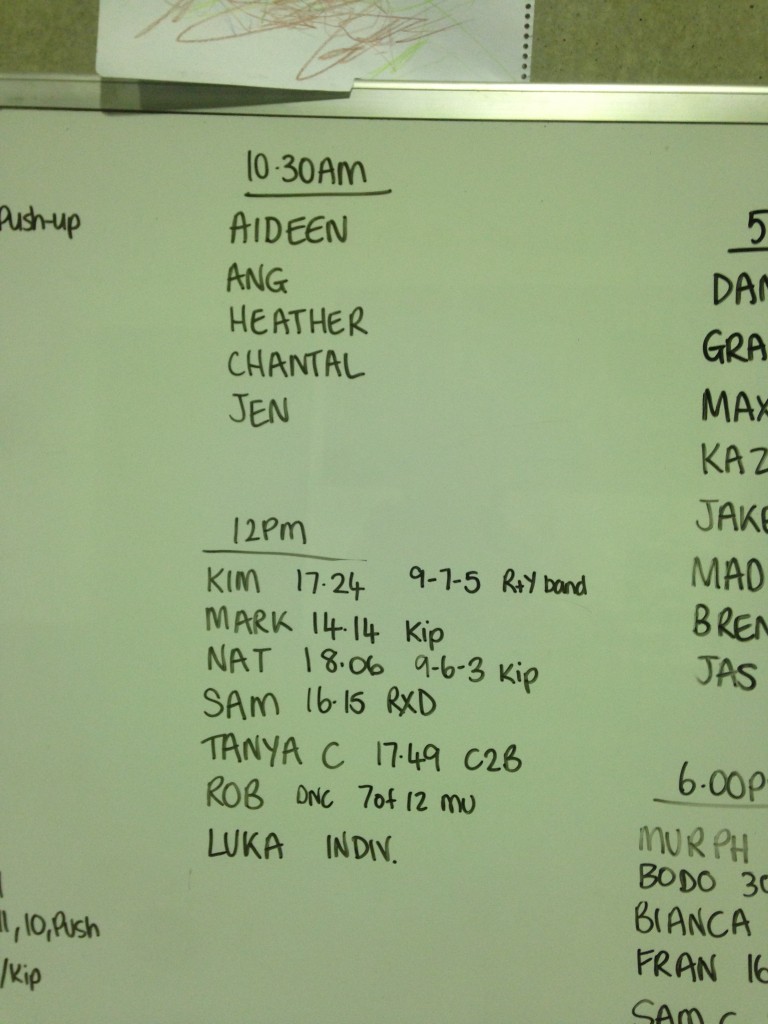 Push-up
11, 10, Push
/Kip
10.30AM
AIDEEN
ANG
HEATHER
CHANTAL
JEN
12PM
KIM 17.24 9-7-5 R+Y band
MARK 14.14 Kip
NAT 18.06 9-6-3 Kip
SAM 16.15 RXD
TANYA C 17.49 C2B
ROB DNC 7of 12 MU
LUKA INDIV.
5
DAN
GRA
MAX
KAZ
JAKE
MAD
BREN
JAS
6.00P
MURPH
BODO 30
BIANCA
FRAN 16
SAM C